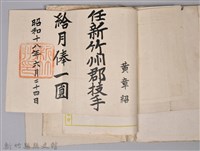 黃章紹
任新竹州郡技手
給月俸一圓
昭和十八年六月二十四日